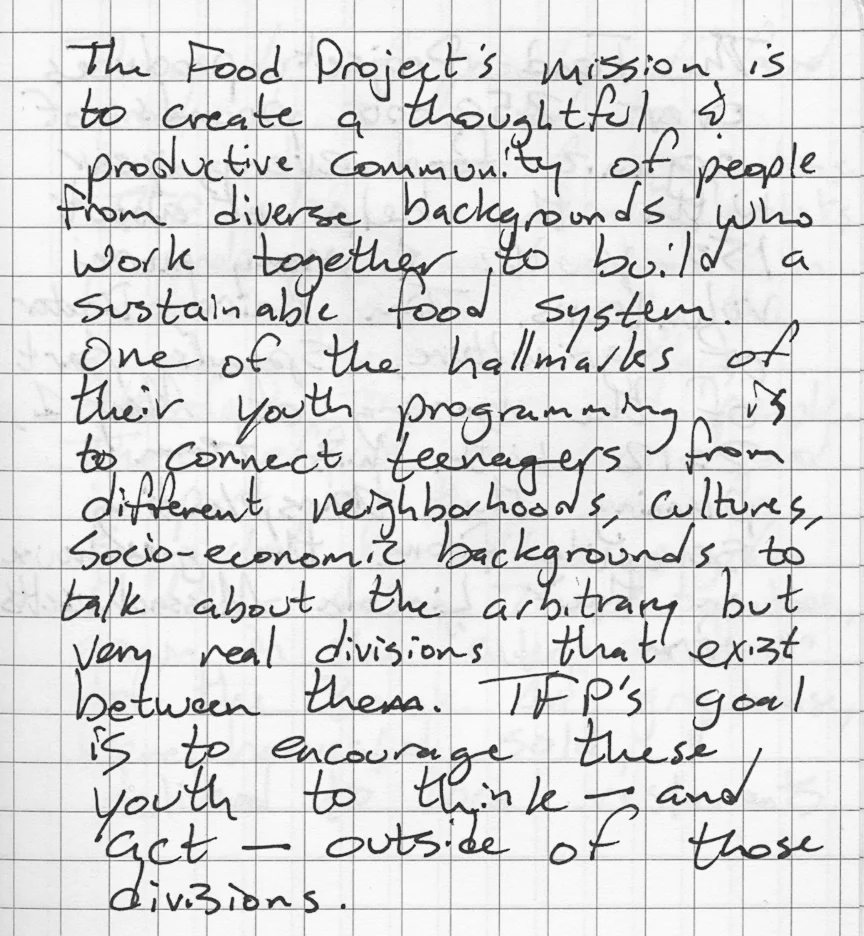 The Food Project's mission is
to create a thoughtful &
productive community of people
from diverse backgrounds who
work together to build a
sustainable food system.
One of the hallmarks of
their youth programming is
to connect teenagers from
different neighborhoods, cultures,
socio-economic backgrounds to
talk about the arbitrary but
very real divisions that exist
between them. TFP's goal
is to encourage these
youth to think — and
act — outside of those
divisions.